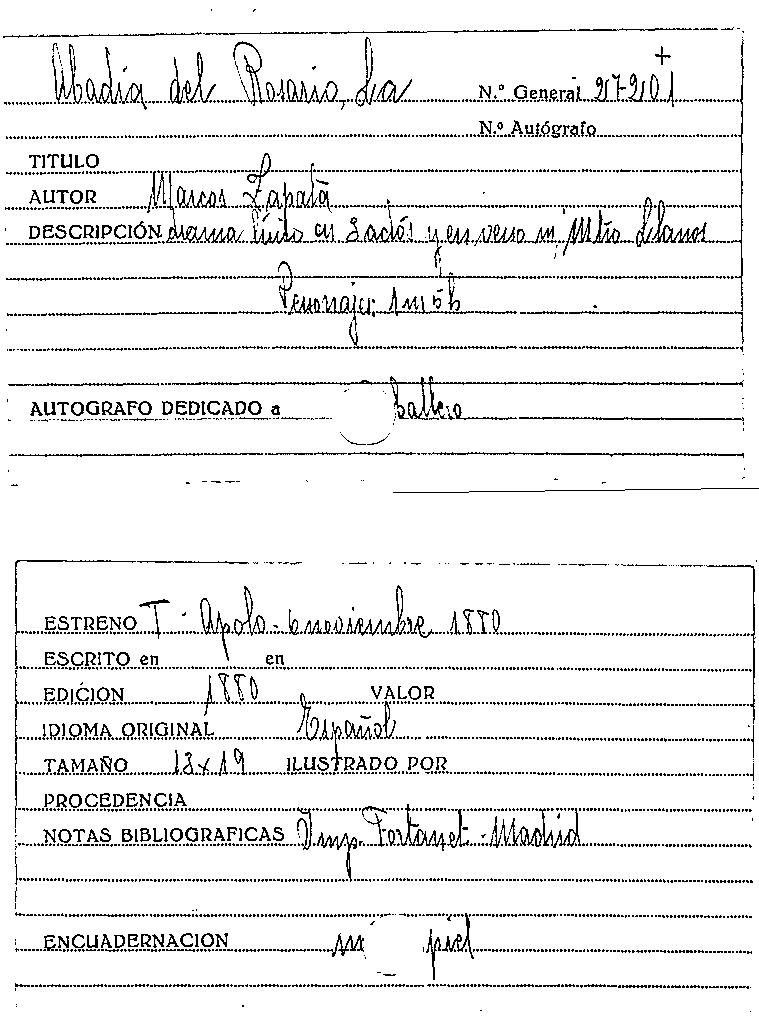 Abadía del Rosario, La
N.º General 27-201
N.º Autógrafo
TITULO
AUTOR Marcos Zapata
DESCRIPCIÓN drama lírico en 3 actos y en verso m, Mtro Llanos
Personajes: 1 m 5 h
AUTOGRAFO DEDICADO a ballero
ESTRENO T. Apolo - 6 noviembre 1880
ESCRITO en en
EDICION 1880 VALOR
IDIOMA ORIGINAL Español
TAMAÑO 13 x 19 ILUSTRADO POR
PROCEDENCIA
NOTAS BIBLIOGRAFICAS Imp. Fortanet - Madrid
ENCUADERNACION piel